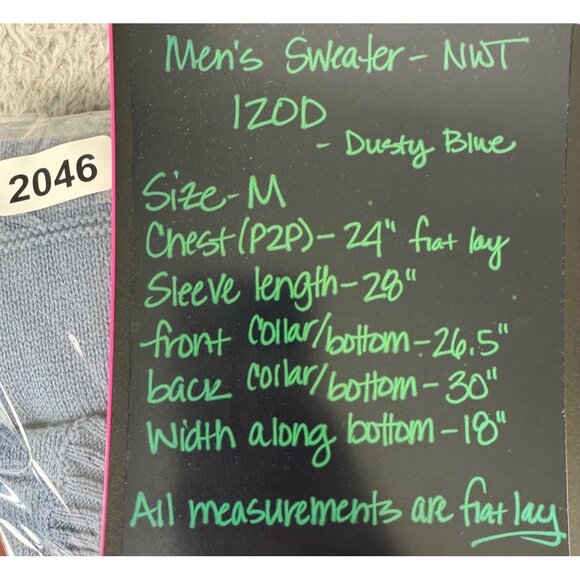 Men's Sweater - NWT
IZOD
- Dusty Blue
2046
Size - M
Chest (P2P) - 24" flat lay
Sleeve length - 28"
front collar/bottom - 26.5"
back collar/bottom - 30"
Width along bottom - 18"
All measurements are flat lay